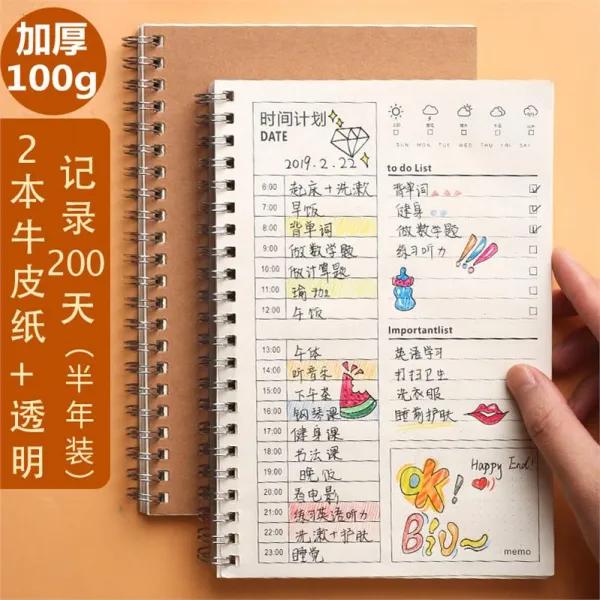 加厚
100g
2本牛皮纸+透明
记录200天(半年装)
时间计划
DATE
2019.2.22
6:00 起床+洗漱
7:00 早饭
8:00 背单词
9:00 做数学题
10:00 做计算题
11:00 瑜加
12:00 午饭
13:00 午休
14:00 听音乐
15:00 下午茶
16:00 钢琴课
17:00 健身课
18:00 书法课
19:00 晚饭
20:00 看电影
21:00 练习英语听力
22:00 洗漱+护肤
23:00 睡觉
SUN MON TUE WED THU FRI SAT
to do List
背单词
健身
做数学题
练习听力
Importantlist
英语学习
打扫卫生
洗衣服
睡前护肤
Happy End!
OK!
Biu~
memo